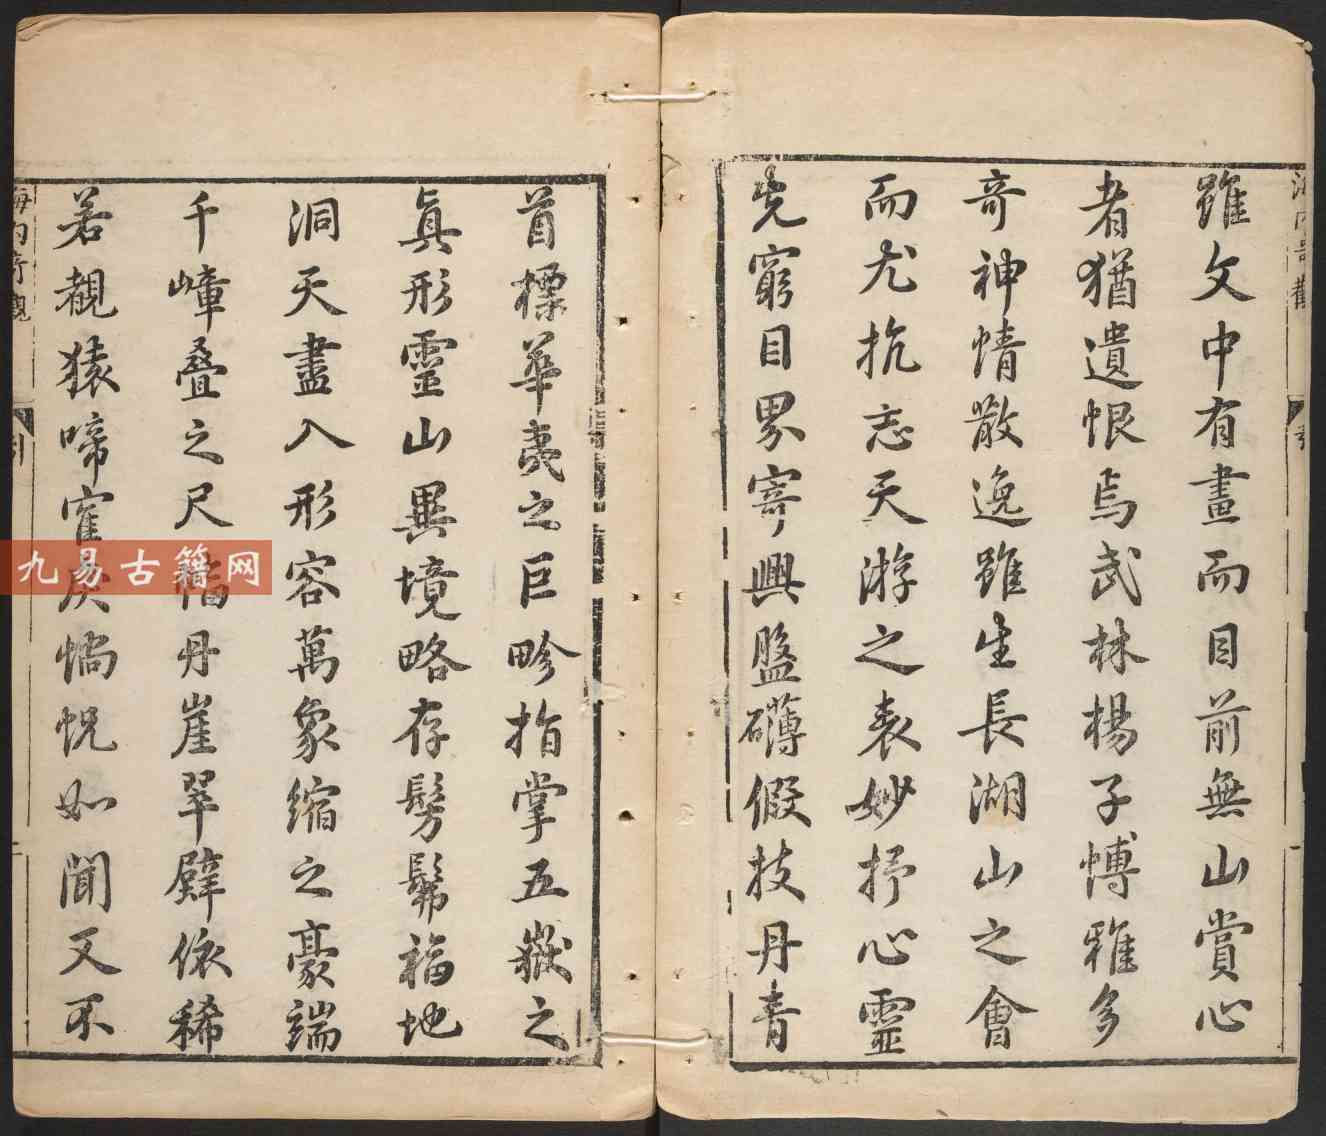 雖文中有畫而目前無山賞心
者猶遺恨焉武林楊子愽雅多
奇神情散逸雖生長湖山之會
而尤抗志天游之表妙抒心靈
窮目界寄興盤礴假技丹青
首標華夷之巨畛指掌五嶽之
真形靈山異境略存髣髴福地
洞天盡入形容萬象縮之豪端
千嶂叠之尺幅丹崖翠壁依稀
若覩猿啼寉戾惝怳如聞又不
海内奇觀
引
九易古籍网